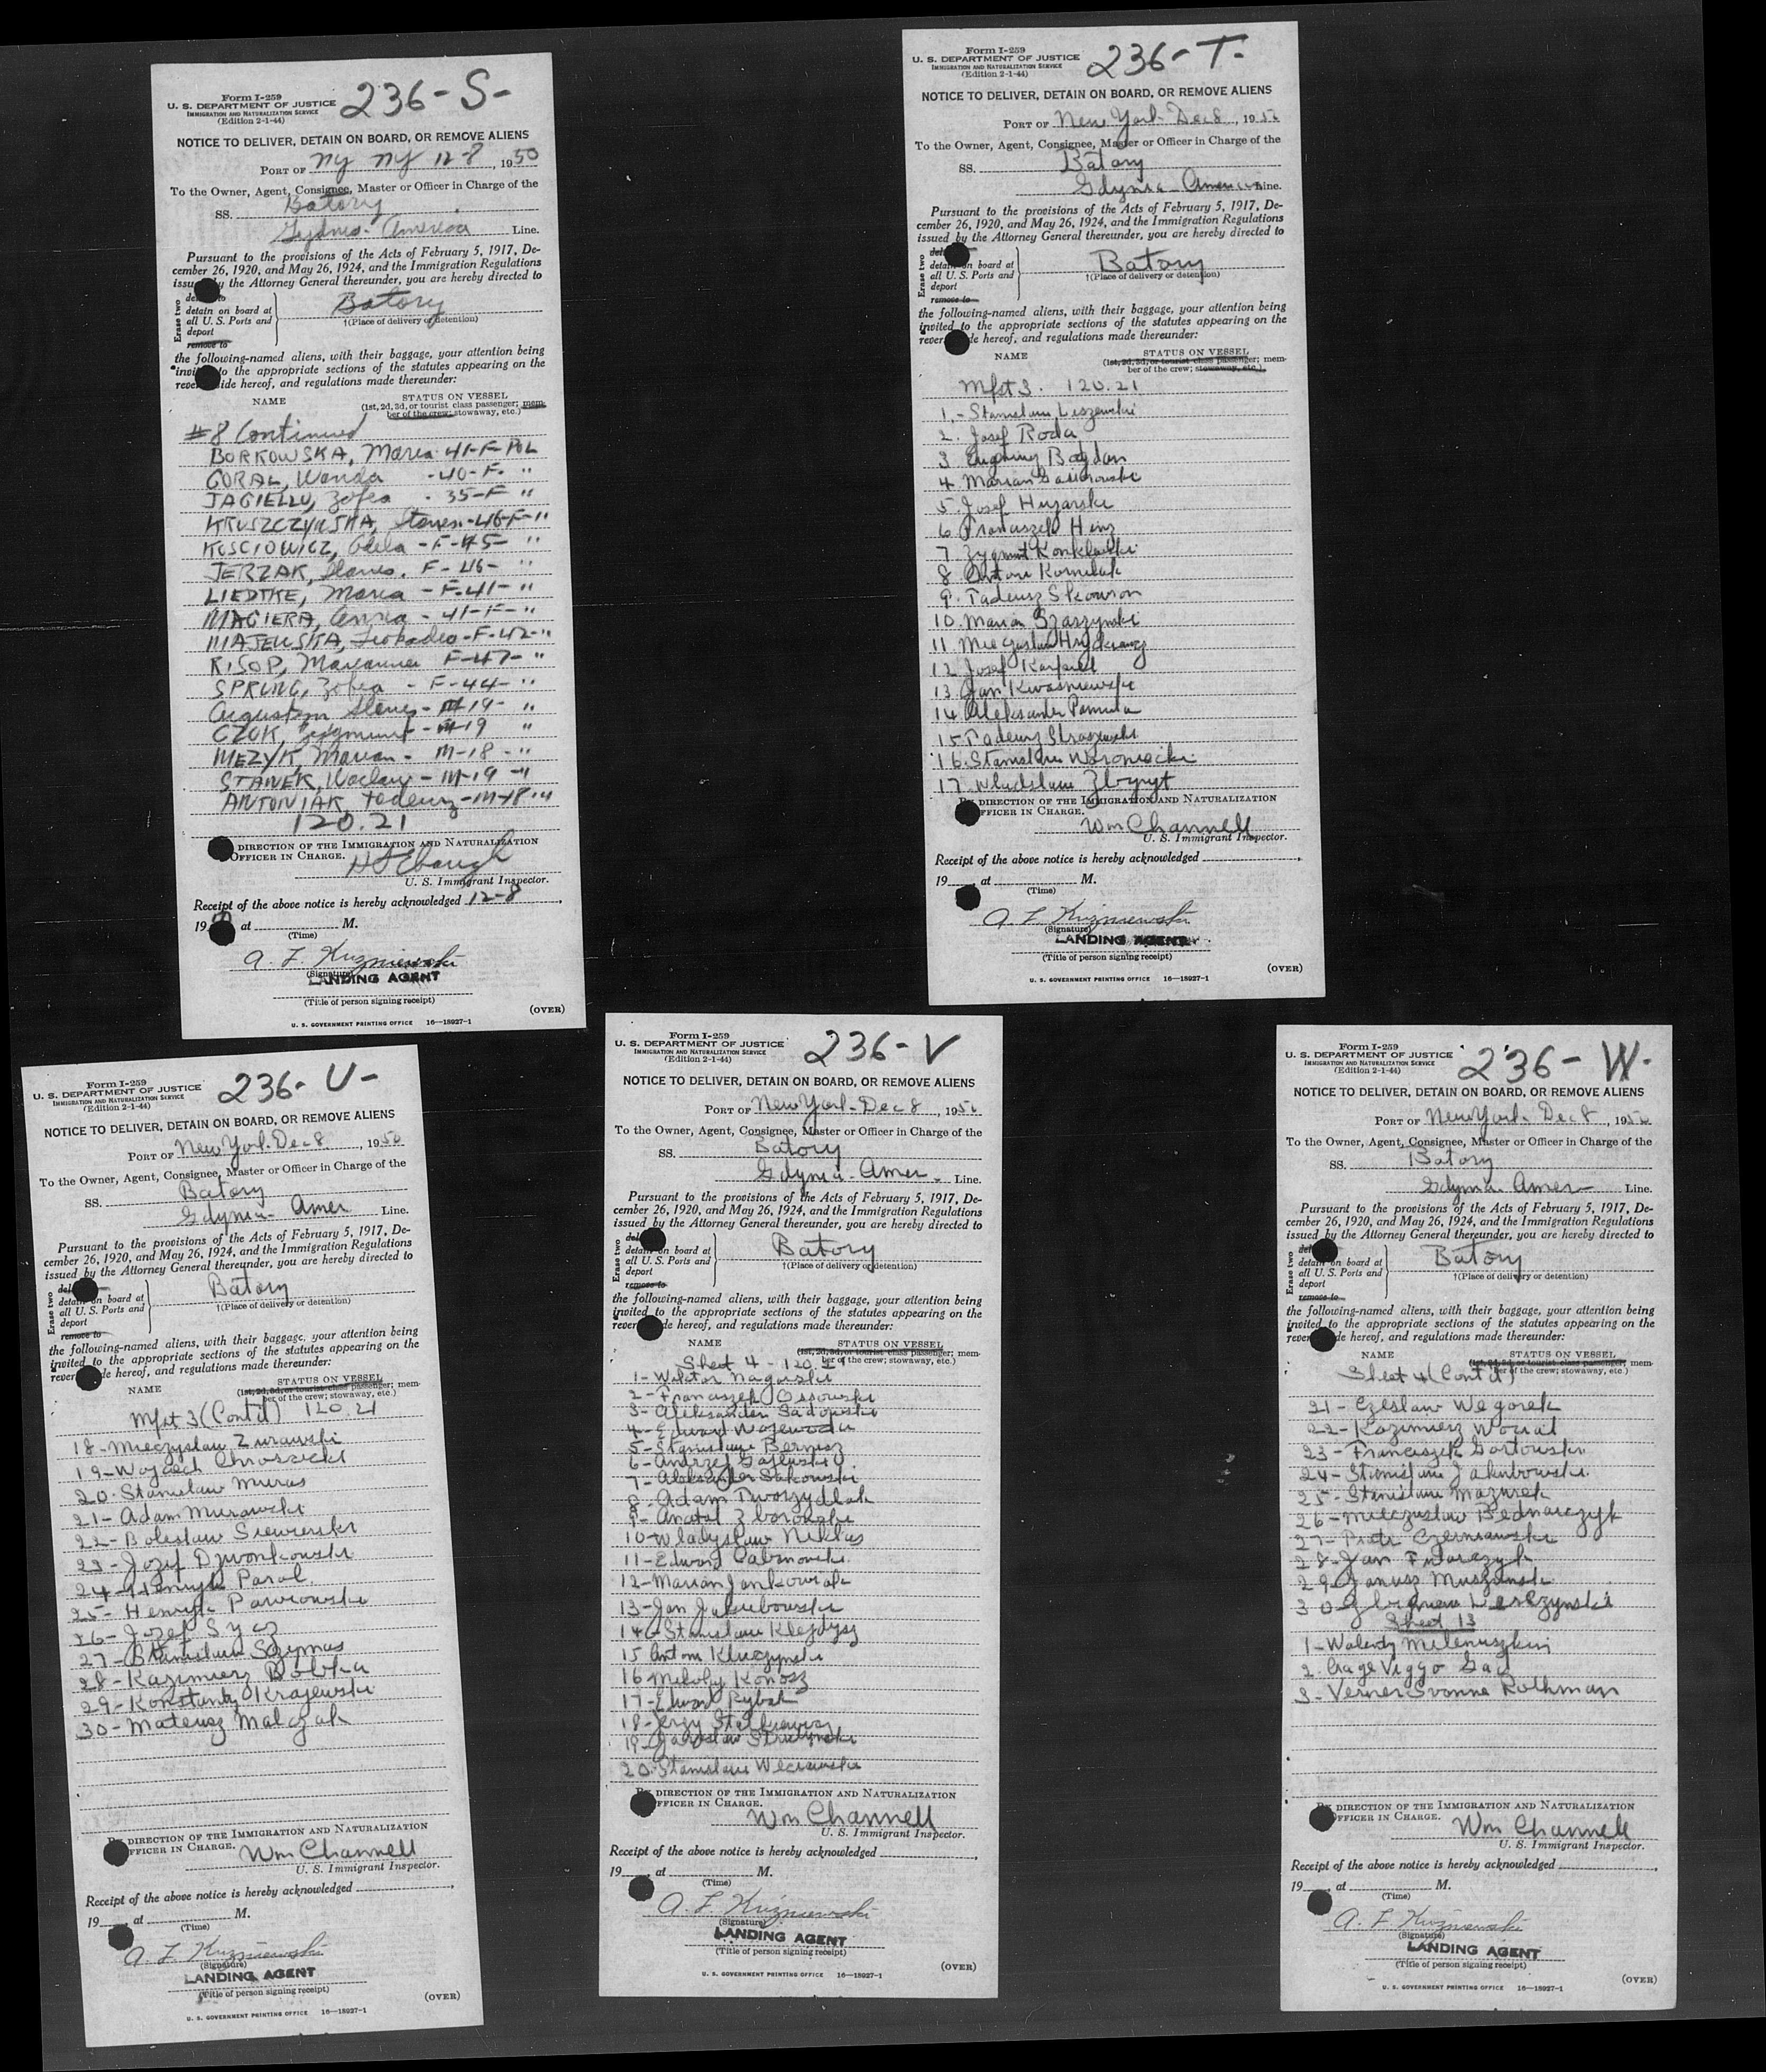 Form I-259
U. S. DEPARTMENT OF JUSTICE
IMMIGRATION AND NATURALIZATION SERVICE
(Edition 2-1-44)
236-S-
NOTICE TO DELIVER, DETAIN ON BOARD, OR REMOVE ALIENS
PORT OF NY NY 12-8, 1950
To the Owner, Agent, Consignee, Master or Officer in Charge of the
SS. Batory
America Line.
Pursuant to the provisions of the Acts of February 5, 1917, De-
cember 26, 1920, and May 26, 1924, and the Immigration Regulations
issued by the Attorney General thereunder, you are hereby directed to
Erase two
detain on board at
all U. S. Ports and
deport
remove to
Batory
†(Place of delivery or detention)
the following-named aliens, with their baggage, your attention being
to the appropriate sections of the statutes appearing on the
hereof, and regulations made thereunder:
NAME STATUS ON VESSEL
(1st, 2d, 3d, or tourist class passenger; mem-
ber of the crew; stowaway, etc.)
#8 Continued
BORKOWSKA, Maria 41-F-POL
GORAL, Wanda -40-F- "
JAGIELLO, Zofia - 35-F "
KRUSZCZYNSKA, -46-F-"
KOSCIOWICZ, -F-45- "
JERZAK, F-46- "
LIEDTKE, Maria -F-41- "
MAGIERA, Anna -41-F-"
MAJEWSKA, -F-42-"
RISOP, Marianna F-47- "
SPRUNG, Zofia - F-44- "
M-19- "
CZUK, Zygmunt - M-19 "
MEZYK, Marian - M-18-"
STANEK, Waclaw - M-19 -"
ANTONIAK, Tadeusz -M-18-"
120.21
DIRECTION OF THE IMMIGRATION AND NATURALIZATION
OFFICER IN CHARGE.
U. S. Immigrant Inspector.
Receipt of the above notice is hereby acknowledged 12-8,
19 at M.
(Time)
A. F. Kuzniewski
(Signature)
LANDING AGENT
(Title of person signing receipt)
(OVER)
U. S. GOVERNMENT PRINTING OFFICE 16—18927-1
Form I-259
U. S. DEPARTMENT OF JUSTICE
IMMIGRATION AND NATURALIZATION SERVICE
(Edition 2-1-44)
236-T-
NOTICE TO DELIVER, DETAIN ON BOARD, OR REMOVE ALIENS
PORT OF New York Dec 8, 1950
To the Owner, Agent, Consignee, Master or Officer in Charge of the
SS. Batory
Gdynia - America Line.
Pursuant to the provisions of the Acts of February 5, 1917, De-
cember 26, 1920, and May 26, 1924, and the Immigration Regulations
issued by the Attorney General thereunder, you are hereby directed to
Erase two
detain on board at
all U. S. Ports and
deport
remove to
Batory
†(Place of delivery or detention)
the following-named aliens, with their baggage, your attention being
invited to the appropriate sections of the statutes appearing on the
hereof, and regulations made thereunder:
NAME STATUS ON VESSEL
(1st, 2d, 3d, or tourist class passenger; mem-
ber of the crew; stowaway, etc.)
Mfst 3. 120.21
1.- Stanislaw Leszewski
2. Josef Roda
3 Bogdan
4 Marian
5. Josef Huzarski
6 Franciszek Hinz
7 Zygmunt
8 Antoni
9. Tadeusz Skowron
10. Marian
11
12 Josef
13 Jan Kwasniewski
14 Aleksander
15 Tadeusz
16. Stanislaw Woroniecki
17
DIRECTION OF THE IMMIGRATION AND NATURALIZATION
OFFICER IN CHARGE.
Wm Channell
U. S. Immigrant Inspector.
Receipt of the above notice is hereby acknowledged ,
19 , at M.
(Time)
A. F. Kuzniewski
(Signature)
LANDING AGENT
(Title of person signing receipt)
(OVER)
U. S. GOVERNMENT PRINTING OFFICE 16—18927-1
Form I-259
U. S. DEPARTMENT OF JUSTICE
IMMIGRATION AND NATURALIZATION SERVICE
(Edition 2-1-44)
236-U-
NOTICE TO DELIVER, DETAIN ON BOARD, OR REMOVE ALIENS
PORT OF New York Dec 8, 1950
To the Owner, Agent, Consignee, Master or Officer in Charge of the
SS. Batory
Gdynia - Amer Line.
Pursuant to the provisions of the Acts of February 5, 1917, De-
cember 26, 1920, and May 26, 1924, and the Immigration Regulations
issued by the Attorney General thereunder, you are hereby directed to
Erase two
detain on board at
all U. S. Ports and
deport
remove to
Batory
†(Place of delivery or detention)
the following-named aliens, with their baggage, your attention being
invited to the appropriate sections of the statutes appearing on the
hereof, and regulations made thereunder:
NAME STATUS ON VESSEL
(1st, 2d, 3d, or tourist class passenger; mem-
ber of the crew; stowaway, etc.)
Mfst 3 (Cont'd) 120.21
18-Mieczyslaw Zurawski
19-
20-Stanislaw Muras
21- Adam Murawski
22-Boleslaw Siewierski
23-Jozef Dzwonkowski
24-Henryk Parol
25-Henryk
26-Jozef Sycz
27-Stanislaw Szymas
28-Kazimierz Bobka
29-Konstanty Krajewski
30-Mateusz Malczak
DIRECTION OF THE IMMIGRATION AND NATURALIZATION
OFFICER IN CHARGE.
Wm Channell
U. S. Immigrant Inspector.
Receipt of the above notice is hereby acknowledged ,
19 , at M.
(Time)
A. F. Kuzniewski
(Signature)
LANDING AGENT
(Title of person signing receipt)
(OVER)
U. S. GOVERNMENT PRINTING OFFICE 16—18927-1
Form I-259
U. S. DEPARTMENT OF JUSTICE
IMMIGRATION AND NATURALIZATION SERVICE
(Edition 2-1-44)
236-V
NOTICE TO DELIVER, DETAIN ON BOARD, OR REMOVE ALIENS
PORT OF New York - Dec 8, 1950
To the Owner, Agent, Consignee, Master or Officer in Charge of the
SS. Batory
Gdynia - Amer. Line.
Pursuant to the provisions of the Acts of February 5, 1917, De-
cember 26, 1920, and May 26, 1924, and the Immigration Regulations
issued by the Attorney General thereunder, you are hereby directed to
Erase two
detain on board at
all U. S. Ports and
deport
remove to
Batory
†(Place of delivery or detention)
the following-named aliens, with their baggage, your attention being
invited to the appropriate sections of the statutes appearing on the
hereof, and regulations made thereunder:
NAME STATUS ON VESSEL
(1st, 2d, 3d, or tourist class passenger; mem-
ber of the crew; stowaway, etc.)
Sheet 4 - 120.21
1-Wiktor Nagorski
2-Franciszek Ossowski
3-Aleksander Sadowski
4-Edward Wojewoda
5-Stanislaw
6-Andrzej
7-Aleksander
8-Adam Tworzydlak
9-Anatol Zborowski
10-Wladyslaw Niklas
11-Edward
12-Marian Jankowiak
13-Jan Jakubowski
14-Stanislaw
15 Antoni Kluczynski
16 Konosz
17-Edward Rybak
18-Jerzy
19-Jaroslaw
20-Stanislaw
DIRECTION OF THE IMMIGRATION AND NATURALIZATION
OFFICER IN CHARGE.
Wm Channell
U. S. Immigrant Inspector.
Receipt of the above notice is hereby acknowledged ,
19 , at M.
(Time)
A. F. Kuzniewski
(Signature)
LANDING AGENT
(Title of person signing receipt)
(OVER)
U. S. GOVERNMENT PRINTING OFFICE 16—18927-1
Form I-259
U. S. DEPARTMENT OF JUSTICE
IMMIGRATION AND NATURALIZATION SERVICE
(Edition 2-1-44)
236-W-
NOTICE TO DELIVER, DETAIN ON BOARD, OR REMOVE ALIENS
PORT OF New York Dec 8, 1950
To the Owner, Agent, Consignee, Master or Officer in Charge of the
SS. Batory
Gdynia - Amer Line.
Pursuant to the provisions of the Acts of February 5, 1917, De-
cember 26, 1920, and May 26, 1924, and the Immigration Regulations
issued by the Attorney General thereunder, you are hereby directed to
Erase two
detain on board at
all U. S. Ports and
deport
remove to
Batory
†(Place of delivery or detention)
the following-named aliens, with their baggage, your attention being
invited to the appropriate sections of the statutes appearing on the
hereof, and regulations made thereunder:
NAME STATUS ON VESSEL
(1st, 2d, 3d, or tourist class passenger; mem-
ber of the crew; stowaway, etc.)
Sheet 4 (Cont'd)
21- Czeslaw Wegorek
22-Kazimierz
23-Franciszek Gortowski
24-Stanislaw Jakubowski
25-Stanislaw Mazurek
26-Mieczyslaw Bednarczyk
27-Piotr Czerniawski
28-Jan
29-Janusz Muszynski
30-Zbigniew Leszczynski
Sheet 13
1-
2-Aage Viggo
3-Verner Svonne Rothman
DIRECTION OF THE IMMIGRATION AND NATURALIZATION
OFFICER IN CHARGE.
Wm Channell
U. S. Immigrant Inspector.
Receipt of the above notice is hereby acknowledged ,
19 , at M.
(Time)
A. F. Kuzniewski
(Signature)
LANDING AGENT
(Title of person signing receipt)
(OVER)
U. S. GOVERNMENT PRINTING OFFICE 16—18927-1